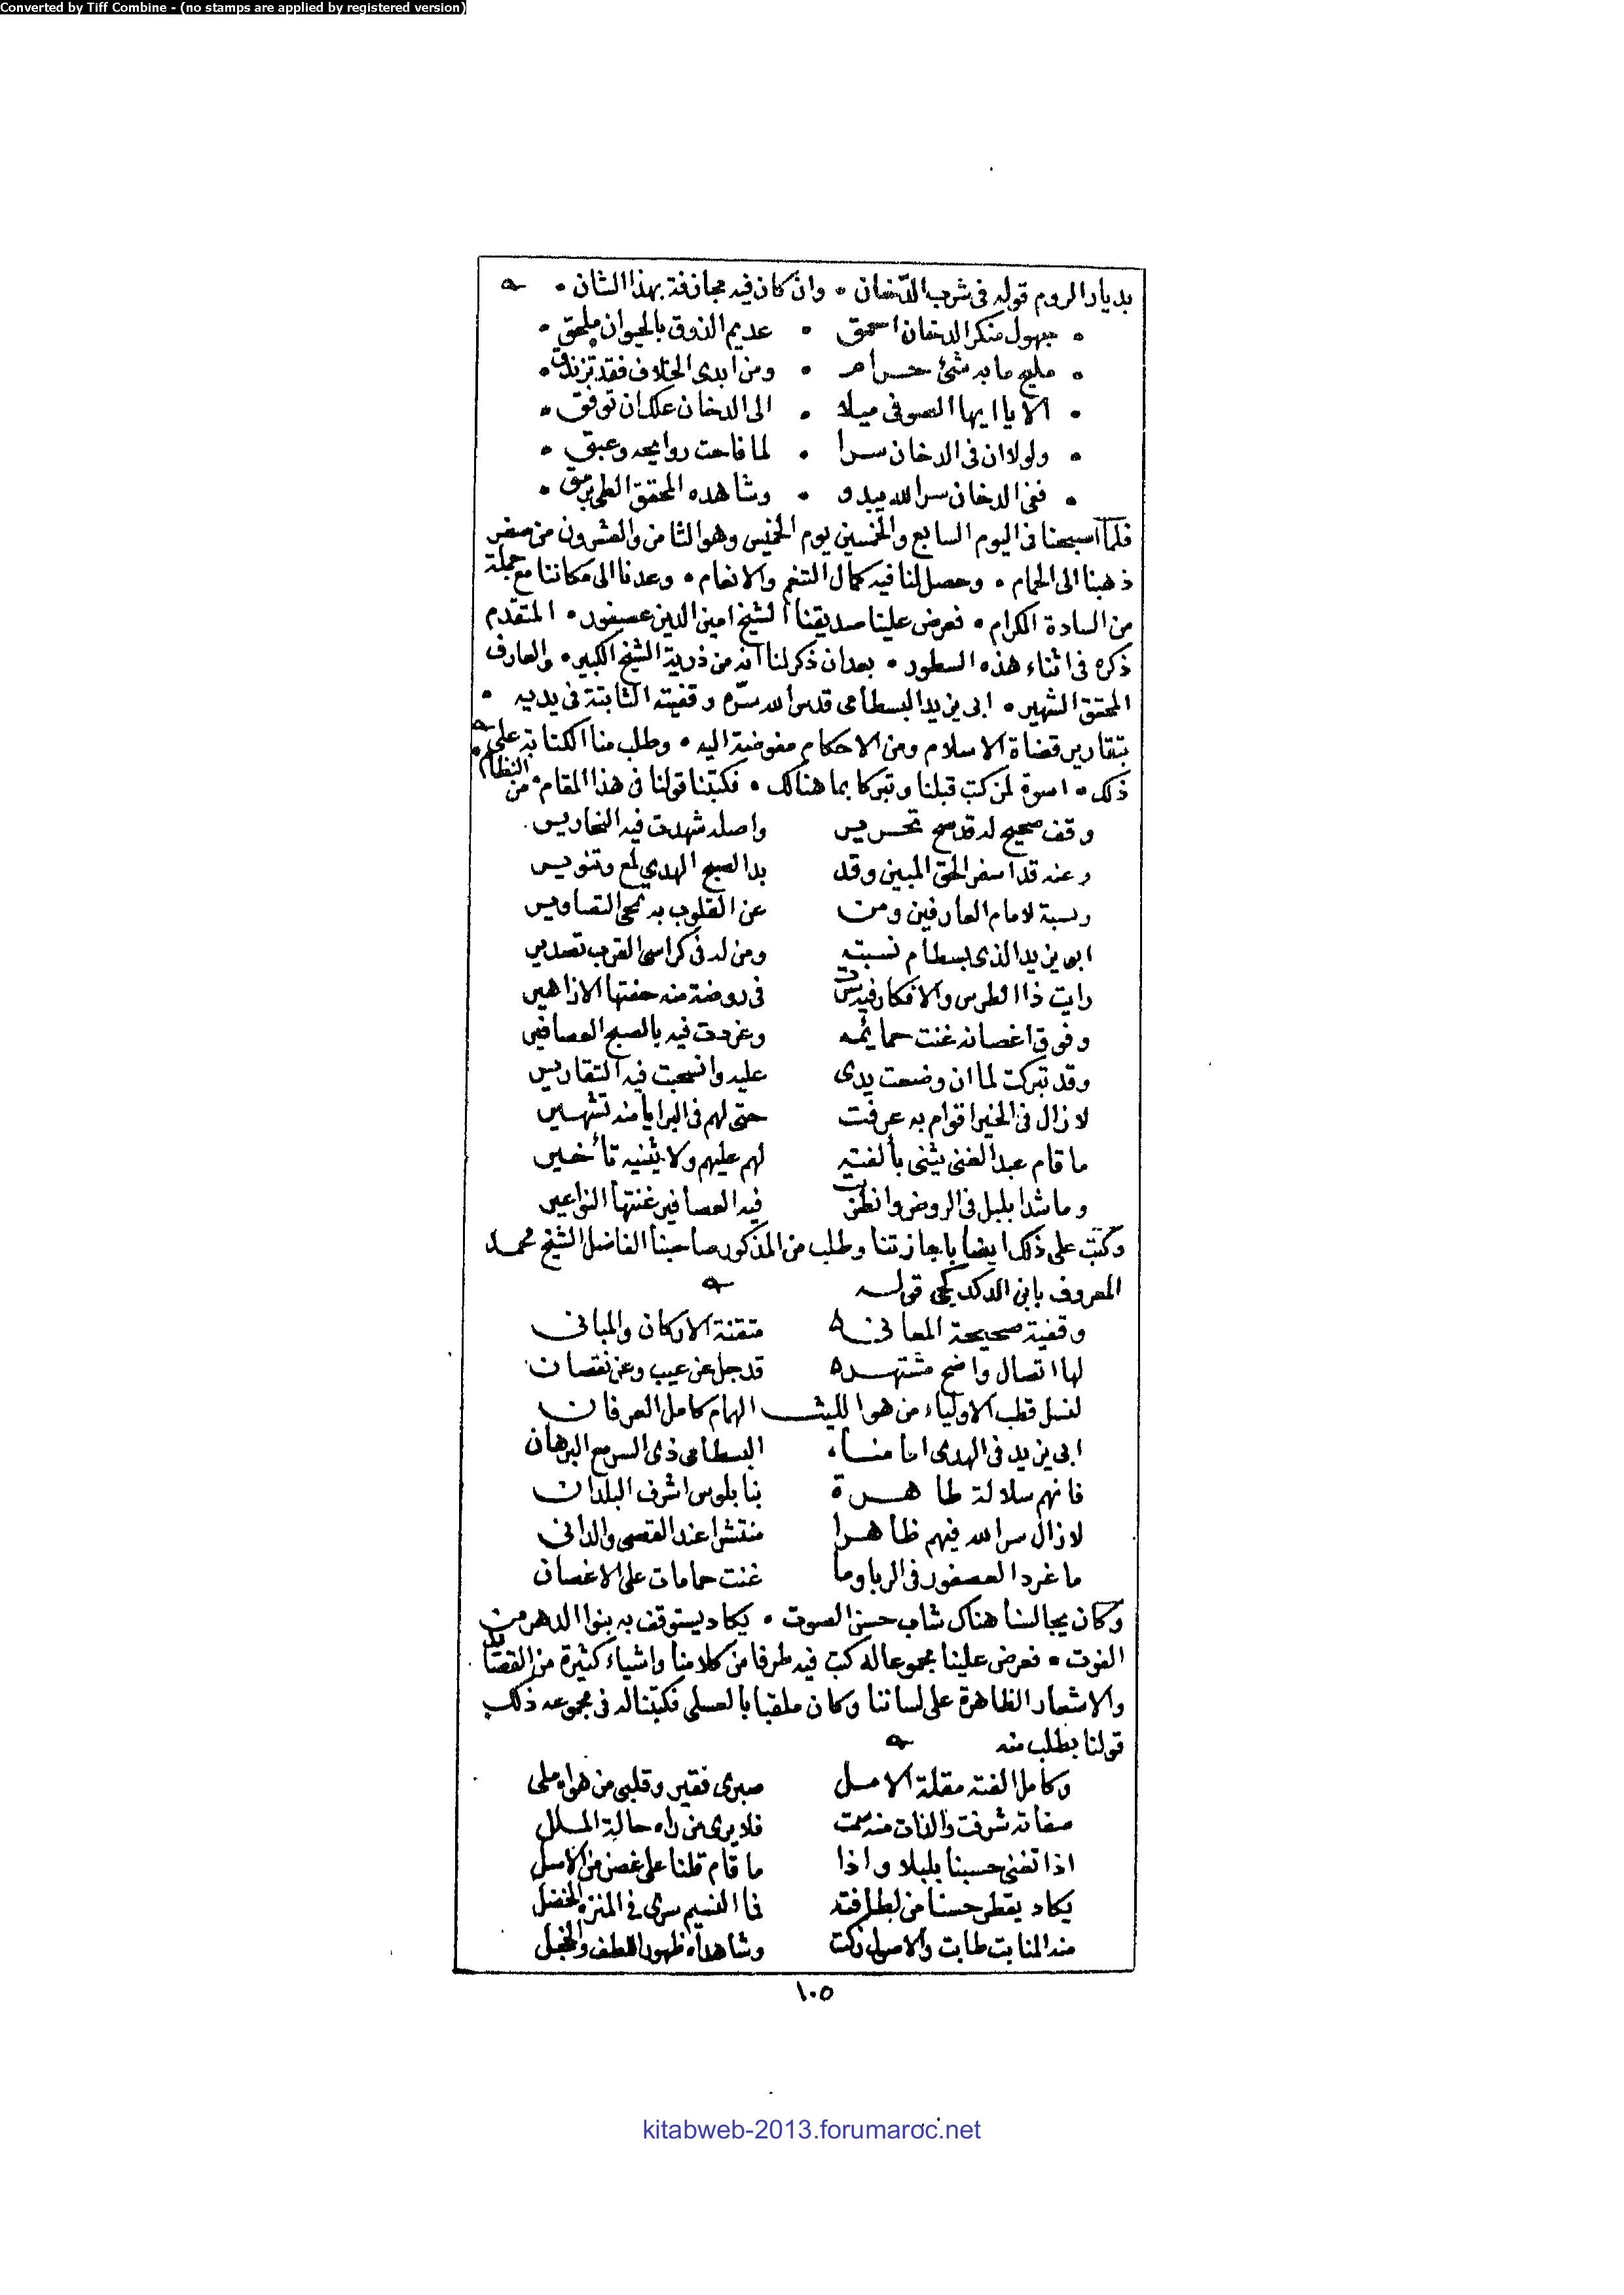 Converted by Tiff Combine - (no stamps are applied by registered version)
بديار الروم قوله فى شرب الدّخان • وان كان فيه مجازفة بهذا الشان •
• جهول منكر الدخان احمق • عديم الذوق بالحيوان ملحق •
• مليح ما به شئ حرام • ومن ابدى الخلاف فقد تزندق •
• الا يا ايها الصوفى ميلا • الى الدخان علك ان توفق •
• ولولا ان فى الدخان سرا • لما فاحت روايحه وعبق •
• ففى الدخان سر الله يبدو • وشاهده المحقق
فلما اصبحنا فى اليوم السابع والخمسين يوم الخميس وهو الثامن والعشرون من صفر
ذهبنا الى الحمام • وحصل لنا فيه كمال التنعم والانعام • وعدنا الى مكاننا مع جملة
من السادة الكرام • فعرض علينا صديقنا الشيخ امين الدين عصفور • المتقدم
ذكره فى اثناء هذه السطور • بعد ان ذكر لنا انه من ذرية الشيخ الكبير • والعارف
المحقق الشهير • ابى يزيد البسطامى قدس الله سرّه وقفيته الثابتة فى يديه •
بتقارير قضاة الاسلام ومن الاحكام مفوضة اليه • وطلب منا الكتابة على
ذلك • اسوة لمن كتب قبلنا وتبركا بما هنالك • فكتبنا قولنا فى هذا المقام • من النظام
وقف صحيح له قد صح تحرير واصله شهدت فيه النحارير
وعنه قد اسفر الحق المبين وقد بدا لصبح الهدى لمع وتنوير
ونسبة لامام العارفين ومن عن القلوب به تمحى التصاوير
ابو يزيد الذى بسطام نسبته ومن له فى كراسى القرب تصدير
رايت ذا الطرس والافكار فيه فى روضة منه حفتها الازاهير
وفوق اغصانه غنت حمايمه وغردت فيه بالصبح العصافير
وقد تبركت لما ان وضعت يدى عليه وانسحبت فيه التقارير
لا زال فى الخير اقوام به عرفت حتى لهم فى البرايا منه تشهير
ما قام عبد الغنى يثنى بألفته لهم عليهم ولا يثنيه تأخير
وما شدا بلبل فى الروض وانطق فيه العصافير غنتها النواعير
وكتب على ذلك ايضا باجازتنا وطلب من المذكور صاحبنا الفاضل الشيخ محمد
المعروف بابن الدكدكجى قوله
وقفية صحيحة المعانى متقنة الاركان والمبانى
لها اتصال واضح مشتهر قد جل عن عيب وعن نقصان
لنسل قطب الاولياء من هو الليث الهام كامل العرفان
ابى يزيد فى الهدى امامنا البسطامى ذى السر مع البرهان
فانهم سلالة طاهرة بنابلوس اشرف البلدان
لا زال سر الله فيهم ظاهرا منتشرا عند القصى والدانى
ما غرد العصفور فى الربا وما غنت حمامات على الاغصان
وكان يجالسنا هناك شاب حسن الصوت • يكاد يستوقف به بنو الدهر من
الفوت • فعرض علينا مجموعا له كتب فيه طرفا من كلامنا واشياء كثيرة من القصائد
والاشعار الظاهرة على لساننا وكان ملقبا بالعسلى فكتبنا له فى مجموعه ذلك
قولنا بطلب منه
وكامل الفته مقلة الامل صبرى فقير وقلبى من هواه ملى
صفاته شرفت والذات منه سمت فلا يرى من راه حالة الملل
اذا تغنى حسبنا بلبلا واذا ما قام قلنا على غصن من الاسل
يكاد يقطر حسنا من لطافته فما النسيم سرى فى المنزه الخضل
منه المنابت طابت والاصول زكت وشاهداه ظهور اللطف والخجل
١٠٥
kitabweb-2013.forumaroc.net